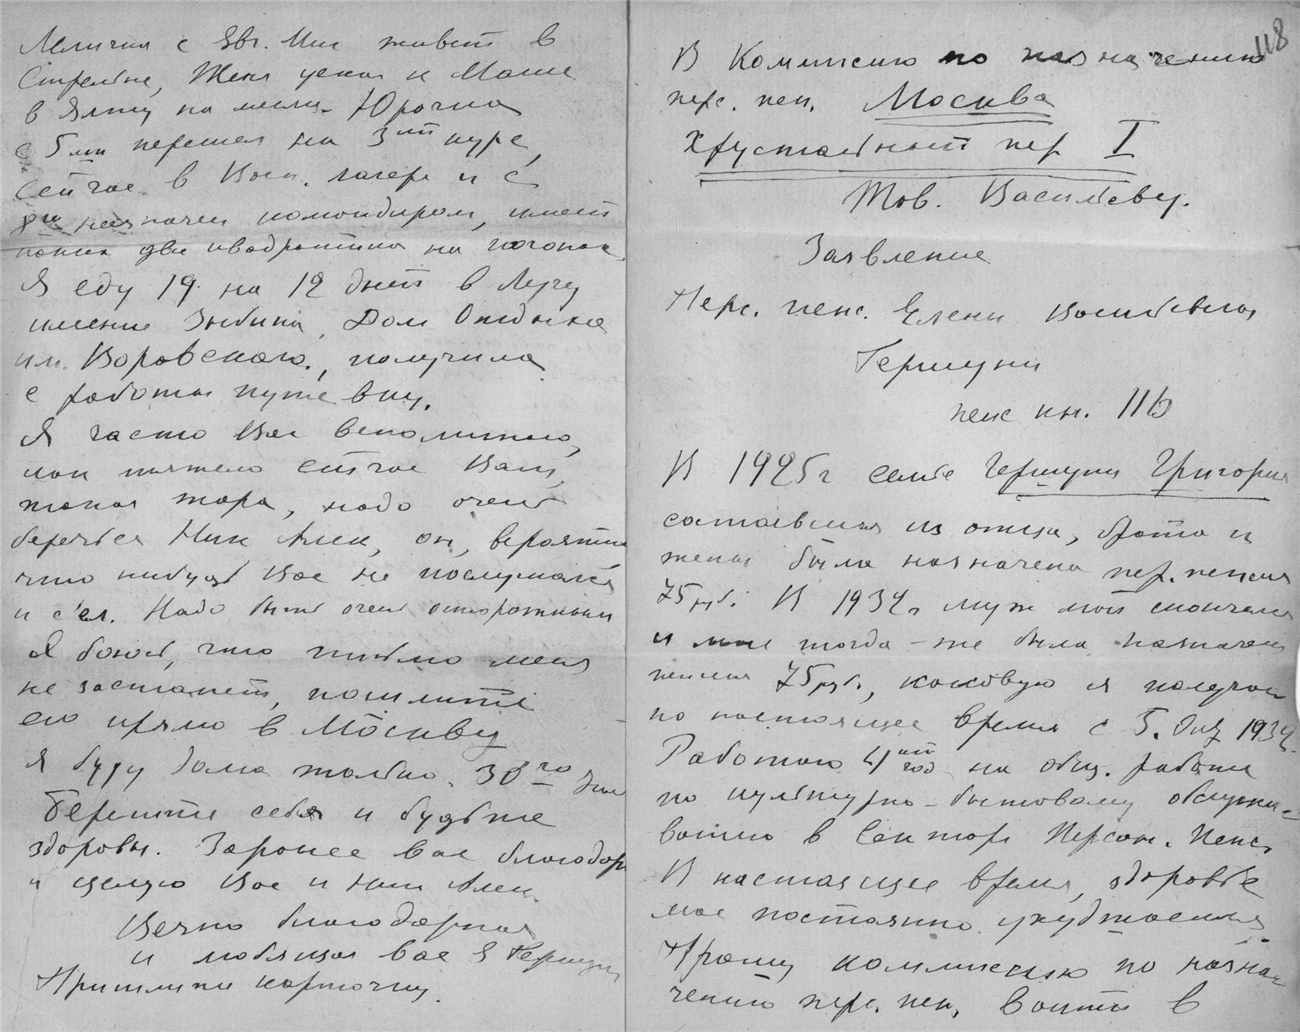 с Евг. Мих живет в
Стрельне, Женя уехал к Маше
в Ялту на месяц. Юрочка
с 5ым перешел на 3ий курс,
сейчас в Воен. лагере и с
8го назначен командиром, имеет
две квадратика на погонах
Я еду 19 на 12 дней в Лугу
имение Зыбина, Дом Отдыха
им. Воровского, получила
с работы путевку.
Я часто Вас вспоминаю,
как тяжело сейчас Вам,
такая жара, надо очень
беречься Ник Алек, он, вероятно
что нибудь Вас не послушался
и с'ел. Надо быть очень осторожным
Я боюсь, что письмо меня
не застанет, пошлите
его прямо в Москву
Я буду дома только 30го
Берегите себя и будьте
здоровы. Заранее вас благодар
и целую Вас и Ник Алек.
Вечно благодарная
и любящая вас Е Гершуни
Пришлите карточку.
118
В Комиссию по назначению
перс. пен. Москва
Хрустальный пер I
Тов. Васильеву.
Заявление
Перс. пенс. Елены Васильевны
Гершуни
пенс кн. 116
В 1925г семье Гершуни Григория
состоявшая из отца, брата и
жены была назначена пер. пенсия
75 руб. В 1934г муж мой скончался
и мне тогда-же была назначена
пенсия 75 руб., каковую я получаю
по настоящее время с 5. 1934.
Работаю 4ый год на общ. работе
по культурно-бытовому обслужи-
ванию в Секторе Персон. Пенс.
В настоящее время, здоровье
мое постоянно ухудшается.
Прошу комиссию по назна
чению перс. пен. войти в